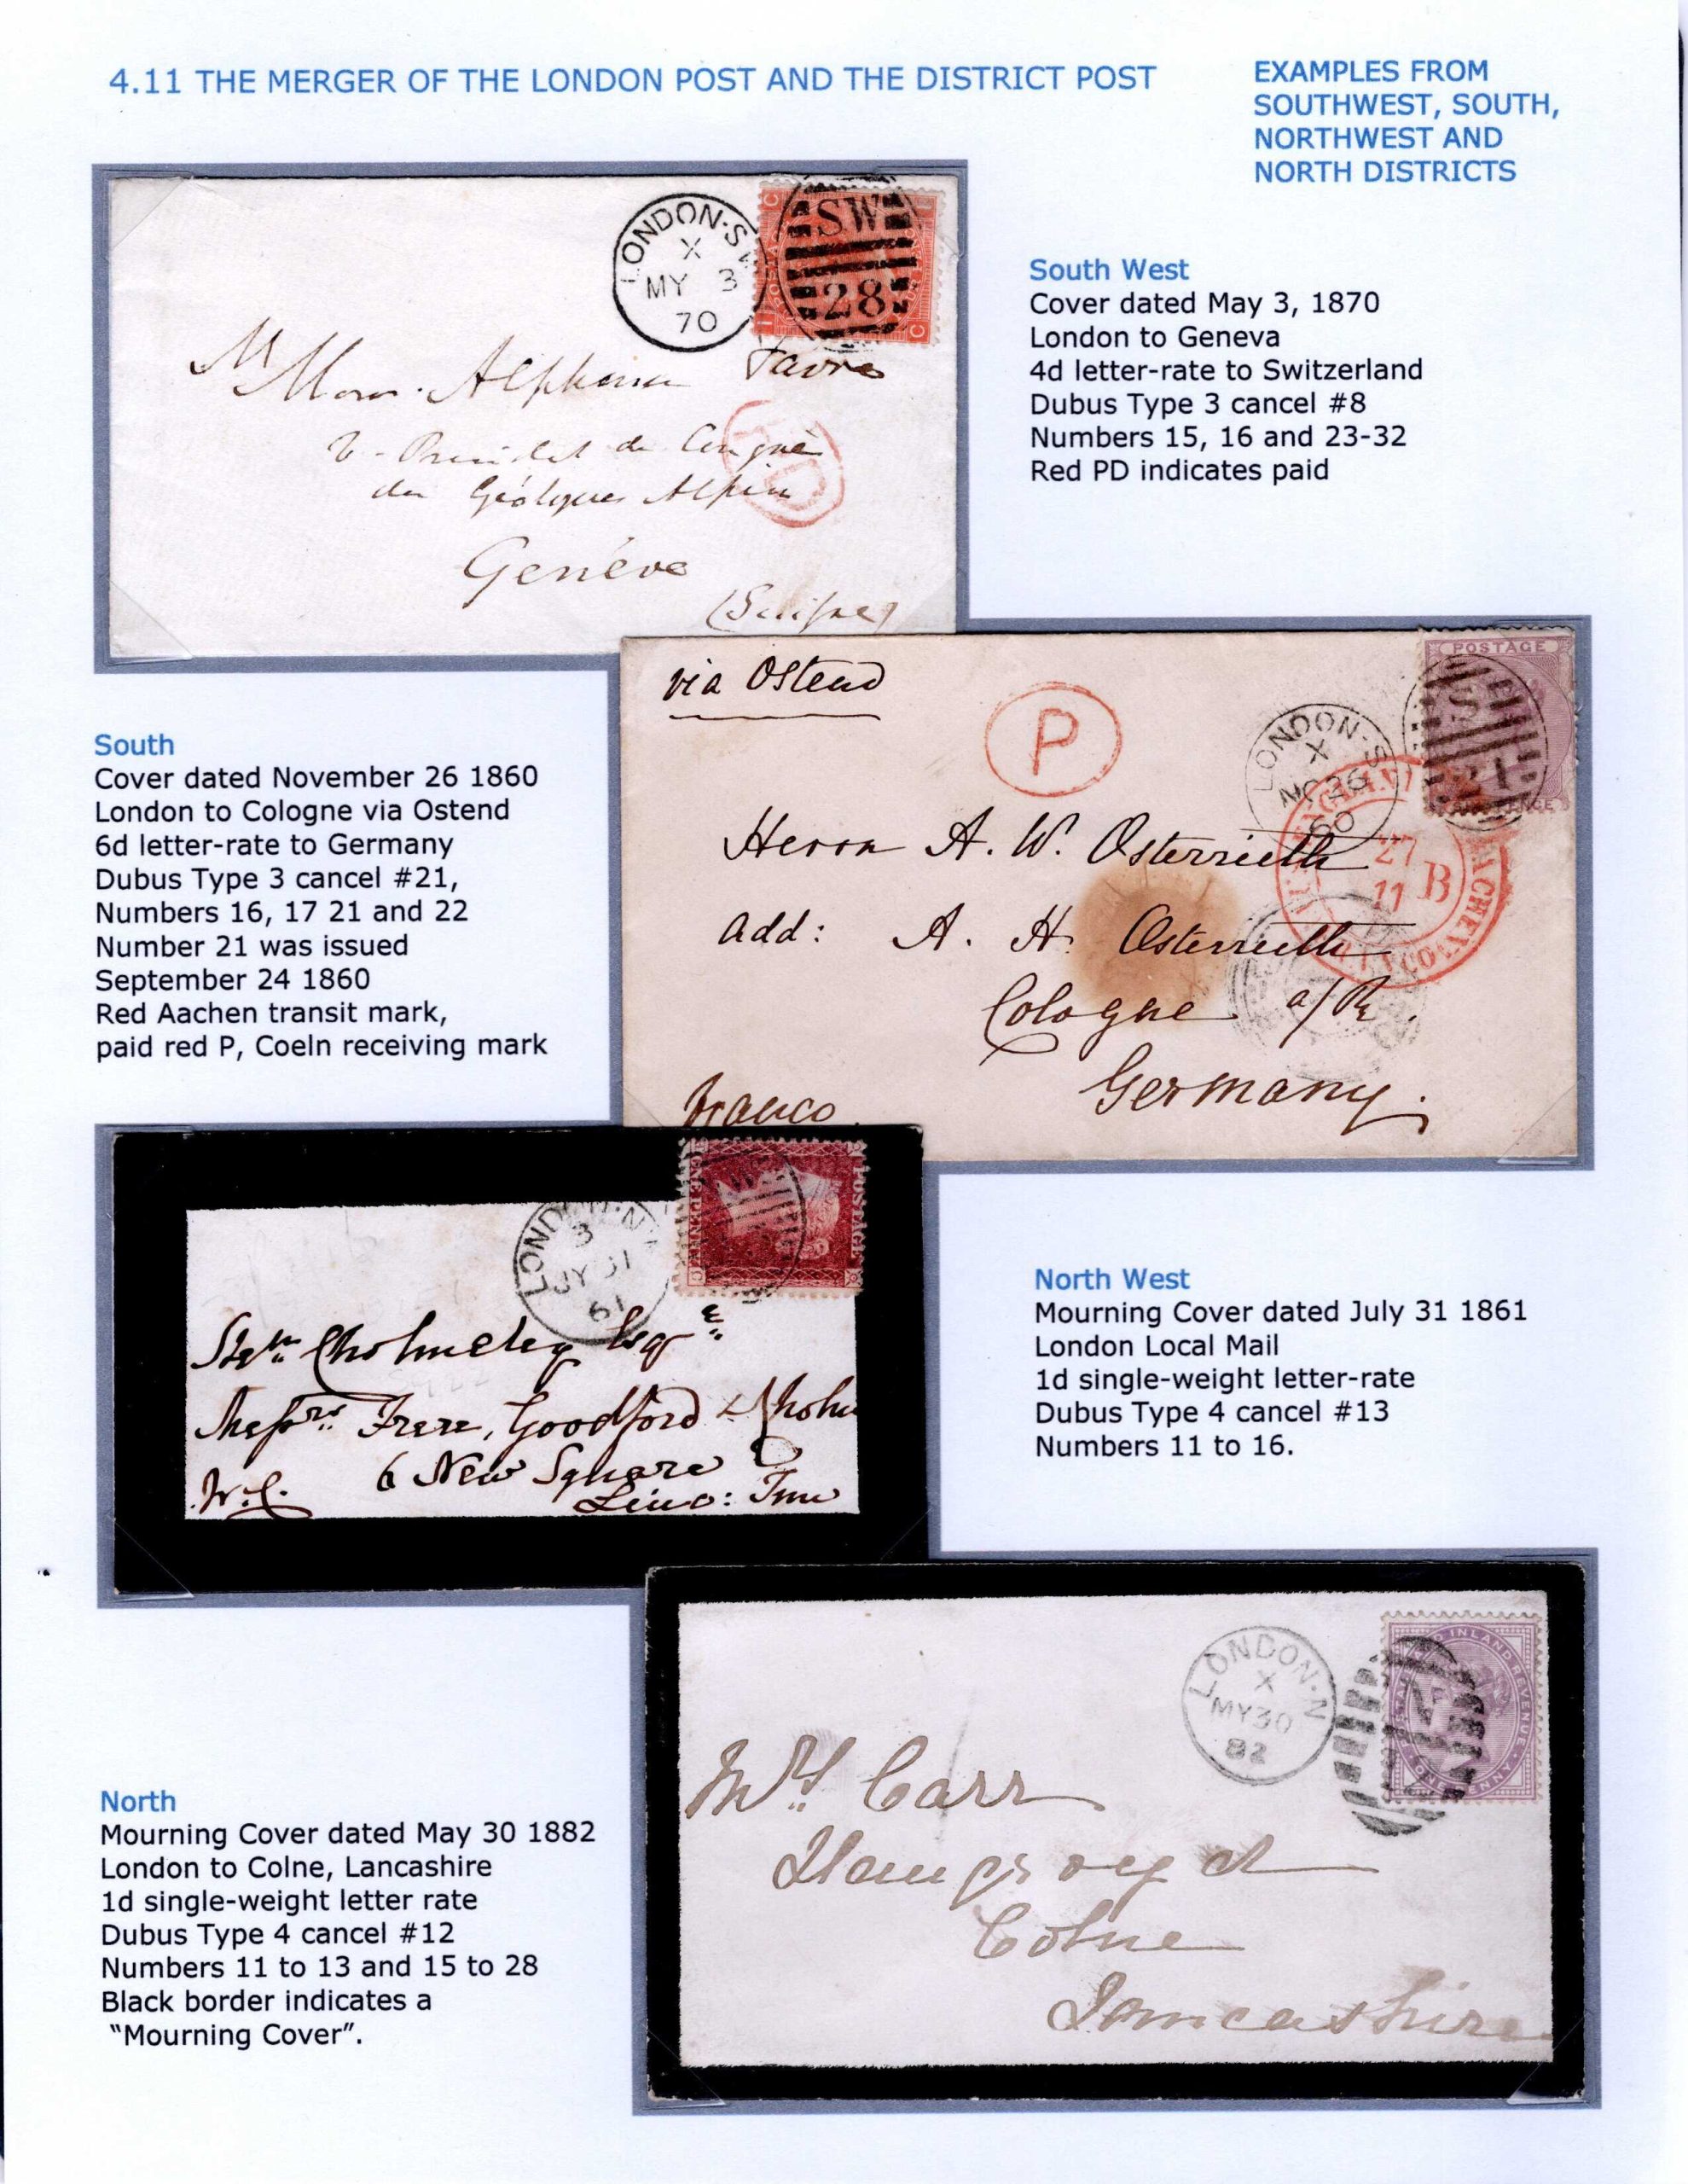 4.11 THE MERGER OF THE LONDON POST AND THE DISTRICT POST
EXAMPLES FROM
SOUTHWEST, SOUTH,
NORTHWEST AND
NORTH DISTRICTS
LONDON·S
X
MY 3
70
SW
28
Alphonse Favre
Genève
(Suisse)
South West
Cover dated May 3, 1870
London to Geneva
4d letter-rate to Switzerland
Dubus Type 3 cancel #8
Numbers 15, 16 and 23-32
Red PD indicates paid
via Ostend
P
LONDON·S
X
NO 26
60
POSTAGE
S
21
27
11
B
Herrn A. W. Osterrieth
add: A. H. Osterrieth
Cologne a/Rh.
Germany.
franco
South
Cover dated November 26 1860
London to Cologne via Ostend
6d letter-rate to Germany
Dubus Type 3 cancel #21,
Numbers 16, 17 21 and 22
Number 21 was issued
September 24 1860
Red Aachen transit mark,
paid red P, Coeln receiving mark
LONDON·N
3
JY 31
61
POSTAGE
ONE PENNY
Cholmeley Esqre
Messrs. Frere, Goodford &
6 New Square
W.C.
Linc: Inn
North West
Mourning Cover dated July 31 1861
London Local Mail
1d single-weight letter-rate
Dubus Type 4 cancel #13
Numbers 11 to 16.
LONDON·N
X
MY 30
82
INLAND REVENUE
ONE PENNY
N
12
Mrs. Carr
Colne
Lancashire
North
Mourning Cover dated May 30 1882
London to Colne, Lancashire
1d single-weight letter rate
Dubus Type 4 cancel #12
Numbers 11 to 13 and 15 to 28
Black border indicates a
"Mourning Cover".